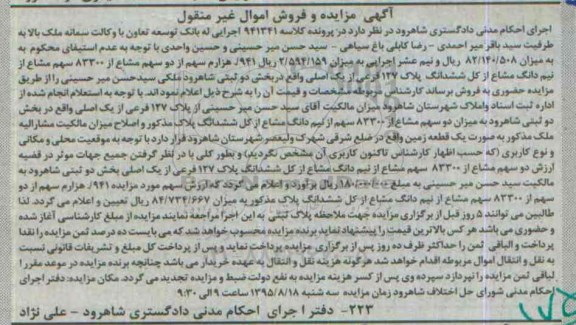 آگهی مزایده و فروش اموال غیر منقول
اجرای احکام مدنی دادگستری شاهرود در نظر دارد در پرونده کلاسه ۹۴۱۳۴۱ اجرایی له بانک توسعه تعاون با وکالت سمانه ملک بالا به
طرفیت سید باقر میر احمدی - رضا کابلی باغ سیاهی - سید حسن میر حسینی و حسین واحدی با توجه به عدم استیفای محکوم به
به میزان ۸۲/۱۴۰/۵۰۸ ریال و نیم عشر اجرایی به میزان ۲/۵۹۴/۱۵۹ ریال ۹۴۱/. هزارم سهم از دو سهم مشاع از ۸۳۳۰۰ سهم مشاع از
نیم دانگ مشاع از کل ششدانگ پلاک ۱۲۷ فرعی از یک اصلی واقع دربخش دو ثبتی شاهرود ملکی سیدحسن میر حسینی را از طریق
مزایده حضوری به فروش برساند کارشناس مربوطه مشخصات و قیمت آن را به شرح ذیل اعلام نمودند. با توجه به استعلام انجام شده از
اداره ثبت اسناد واملاک شهرستان شاهرود میزان مالکیت آقای سید حسن میر حسینی از پلاک ۱۲۷ فرعی از یک اصلی واقع در بخش
دو ثبتی شاهرود به میزان دو سهم از ۸۳۳۰۰ سهم از نیم دانگ مشاع از کل ششدانگ پلاک مذکور و اصلاح میزان مالکیت مشارالیه
ملک مذکور به صورت یک قطعه زمین واقع در ضلع شرقی شهرک ولیعصر شهرستان شاهرود قرار دارد با توجه به موقعیت محلی و مکانی
و نوع کاربری (که حسب اظهار کارشناس تاکنون کاربری آن مشخص نگردید) و بطور کلی با در نظر گرفتن جمیع جهات موثر در قضیه
ارزش دو سهم مشاع از ۸۳۳۰۰ سهم مشاع از نیم دانگ مشاع از کل ششدانگ پلاک ۱۲۷ فرعی از یک اصلی بخش دو ثبتی شاهرود به
مالکیت سید حسن میر حسینی به مبلغ ریال برآورد و اعلام می گردد که ارزش سهم مورد مزایده ۹۴۱/. هزارم سهم از دو
سهم از ۸۳۳۰۰ سهم مشاع از نیم دانگ مشاع از کل ششدانگ پلاک مذکور به میزان ۸۴/۷۳۴/۶۶۷ ریال تعیین و اعلام می گردد. لذا
طالبین می توانند ۵ روز قبل از برگزاری مزایده جهت ملاحظه پلاک ثبتی به این اجرا مراجعه نمایند مزایده از مبلغ کارشناسی آغاز شده
و حضوری می باشد هر کس بالاترین قیمت را پیشنهاد نماید برنده مزایده محسوب خواهد شد که می بایست ده درصد ثمن مزایده را نقدا
پرداخت و الباقی ثمن را حداکثر ظرف ده روز پس از برگزاری مزایده پرداخت نماید و پس از پرداخت کل مبلغ و تشریفات قانونی نسبت
به نقل و انتقال اموال مربوطه اقدام خواهد شد هرگونه هزینه نقل و انتقال به عهده خریدار می باشد چنانچه برنده مزایده در موعد مقرر
لباقی ثمن مزایده را نپردازد سپرده وی پس از کسر هزینه مزایده به نفع دولت ضبط و مزایده تجدید می گردد. مکان مزایده: دفتر اجرای
احکام مدنی شورای حل اختلاف شاهرود زمان مزایده سه شنبه ۱۳۹۵/۸/۱۸ ساعت ۹ الی ۹:۳۰
۲۲۳- دفتر اجرای احکام مدنی دادگستری شاهرود - علی نژاد